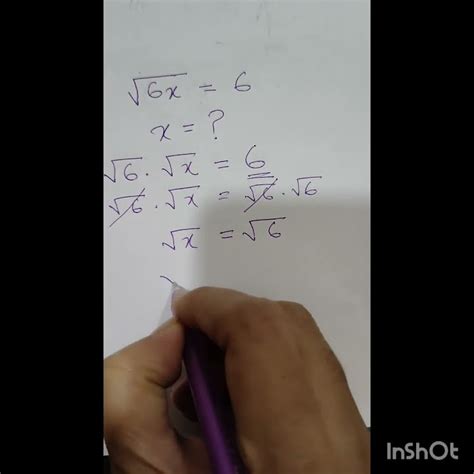 √6x = 6
x = ?
√6 . √x = 6
√6 . √x = √6 . √6
√x = √6
InShOt